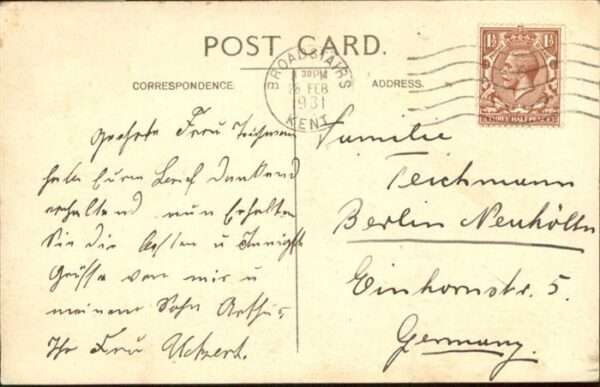 POST CARD.
CORRESPONDENCE.
ADDRESS.
BROADSTAIRS
30 PM
FEB
1931
KENT
1½
1½
THREE HALF PENCE
Geehrte Frau Teichmann
habe Euren Brief dankend
erhaltend nun Erhalten
Sie die besten u Innigst
Grüsse von mir u
meinem Sohn Arthur
Ihr Frau
Familie
Teichmann
Berlin Neukölln
Einhornstr. 5.
Germany.